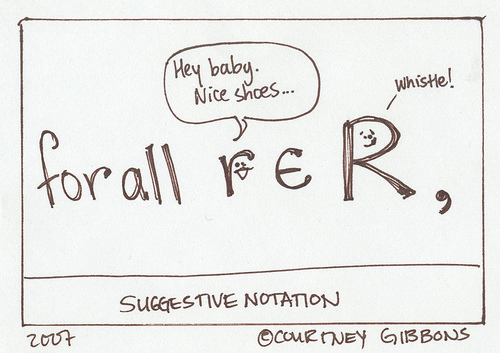 Hey baby.
Nice shoes...
whistle!
for all r ∈ R,
SUGGESTIVE NOTATION
2007 ©COURTNEY GIBBONS